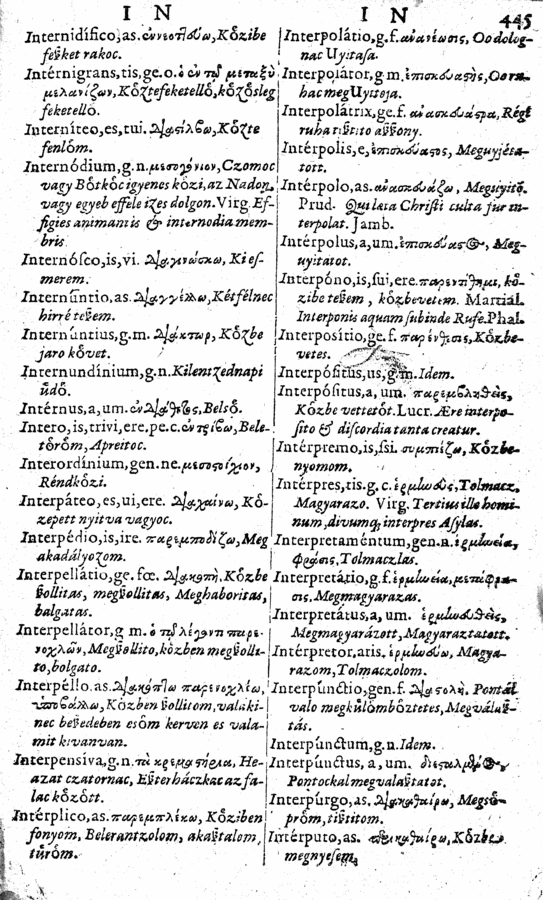 I N
I N
445
Internidífico, as. ἐννεοττεύω, Kǒzibe
feſket rakoc.
Intérnigrans, tis, ge. o. ὁ ἐν τῷ μεταξὺ
μελανίζων, Kǒztefeketellǒ, kǒzǒsleg
feketellǒ.
Interníteo, es, tui. Kǒzte
fenlǒm.
Internódium, g. n. μεσογόνιον, Czomoc
vagy Bǒtkǒc igyenes kǒzi, az Nadon,
vagy egyeb effele izes dolgon. Virg. Ef-
figies animantis & internodia mem-
bris
Internóſco, is, vi. διαγινώσκω, Ki eſ-
merem.
Internūntio, as. διαγγέλλω, Kétfélnec
hirré teſem.
Internúntius, g. m. διάκτωρ, Kǒzbe
jaro kǒvet.
Internundínium, g. n. Kilentzednapi
üdǒ.
Intérnus, a, um. Belsǒ.
Intero, is, trivi, ere. pe. c. ἐντρίβω, Bele-
tǒrǒm, Apreitoc.
Interordínium, gen. ne. μεσοστοίχιον,
Réndkǒzi.
Interpáteo, es, ui, ere. διαχαίνω, Kǒ-
zepett nyitva vagyoc.
Interpédio, is, ire. παρεμποδίζω, Meg
akadályozom.
Interpellátio, ge. fœ. διακοπὴ, Kǒzbe
ſollitas, megſollitas, Meghaboritas,
balgatas.
Interpellátor, g m. ὁ τῷ λέγοντι παρε-
νοχλῶν, Megſollito, kǒzben megſolli-
to, bolgato.
Interpéllo. as. διακόπτω παρενοχλέω,
ὑποβάλλω, Kǒzben ſollitom, valaki-
nec beſedeben esǒm kerven es vala-
mit kivanvan.
Interpensiva, g. n. τὰ κρεμαστήρια, He-
azat czatornac, Eſterháczkac az fa-
lac kǒzǒtt.
Intérplico, as. παρεμπλέκω, Kǒziben
fonyom, Belerantzolom, akaſtalom,
tűrǒm.
Interpolátio, g. f. ανανέωσις, Oo dolog-
nac Uyitaſa.
Interpolator, g m. ἐπισκευαστὴς, Oo ru-
hac meg Uyitoja.
Interpolátrix, ge. f. Régi
ruha tiſtito aſſony.
Intérpolis, e, Meguyjéta-
tott.
Intérpolo, as. ανασκευάζω, Megúyitǒ.
Prud. Qui læta Chriſti culta jur in-
terpolat. Jamb.
Intérpolus, a, um. Meg-
uyitatot.
Interpóno, is, ſui, ere. παρεντίθημι, kǒ-
zibe teſem, kǒzbevetem. Martial.
Interponis aquam ſubinde Rufe. Phal.
Interpositio, ge. f. παρένθεσις, Kǒzbe-
vetes.
Interpóſitus, us, g. m. Idem.
Interpóſitus, a, um. παρεμβληθεὶς,
Kǒzbe vettetǒt. Lucr. Ære interpo-
ſito & diſcordia tanta creatur.
Intérpremo, is, ſsi. συμπιέζω, Kǒzbe
nyomom.
Intérpres, tis, g. c. ἑρμηνεὺς, Tolmacz,
Magyarazo. Virg. Tertius ille homi-
num, divumq; interpres Aſylas.
Interpretaméntum, gen. n. ἑρμηνεία,
φράσις, Tolmaczlas.
Interpretátio, g. f. ἑρμηνεία, μετάφρα-
σις, Megmagyarazas.
Interpretátus, a, um. ἑρμηνευθεὶς,
Megmagyarázott, Magyaraztatott.
Intérpretor, aris. ἑρμηνεύω, Magya-
razom, Tolmaczolom.
Interpúnctio, gen. f. διαστολή. Pontál
valo megkűlǒmbǒztetes, Megválaſ-
tás.
Interpúnctum, g. n. Idem.
Interpúnctus, a, um. Pontockal megvalaſtatot.
Interpúrgo, as. διακαθαίρω, Megsǒ-
prǒm, tiſtitom.
Intérputo, as. περικαθαίρω, Kǒzbe
megnyeſem,